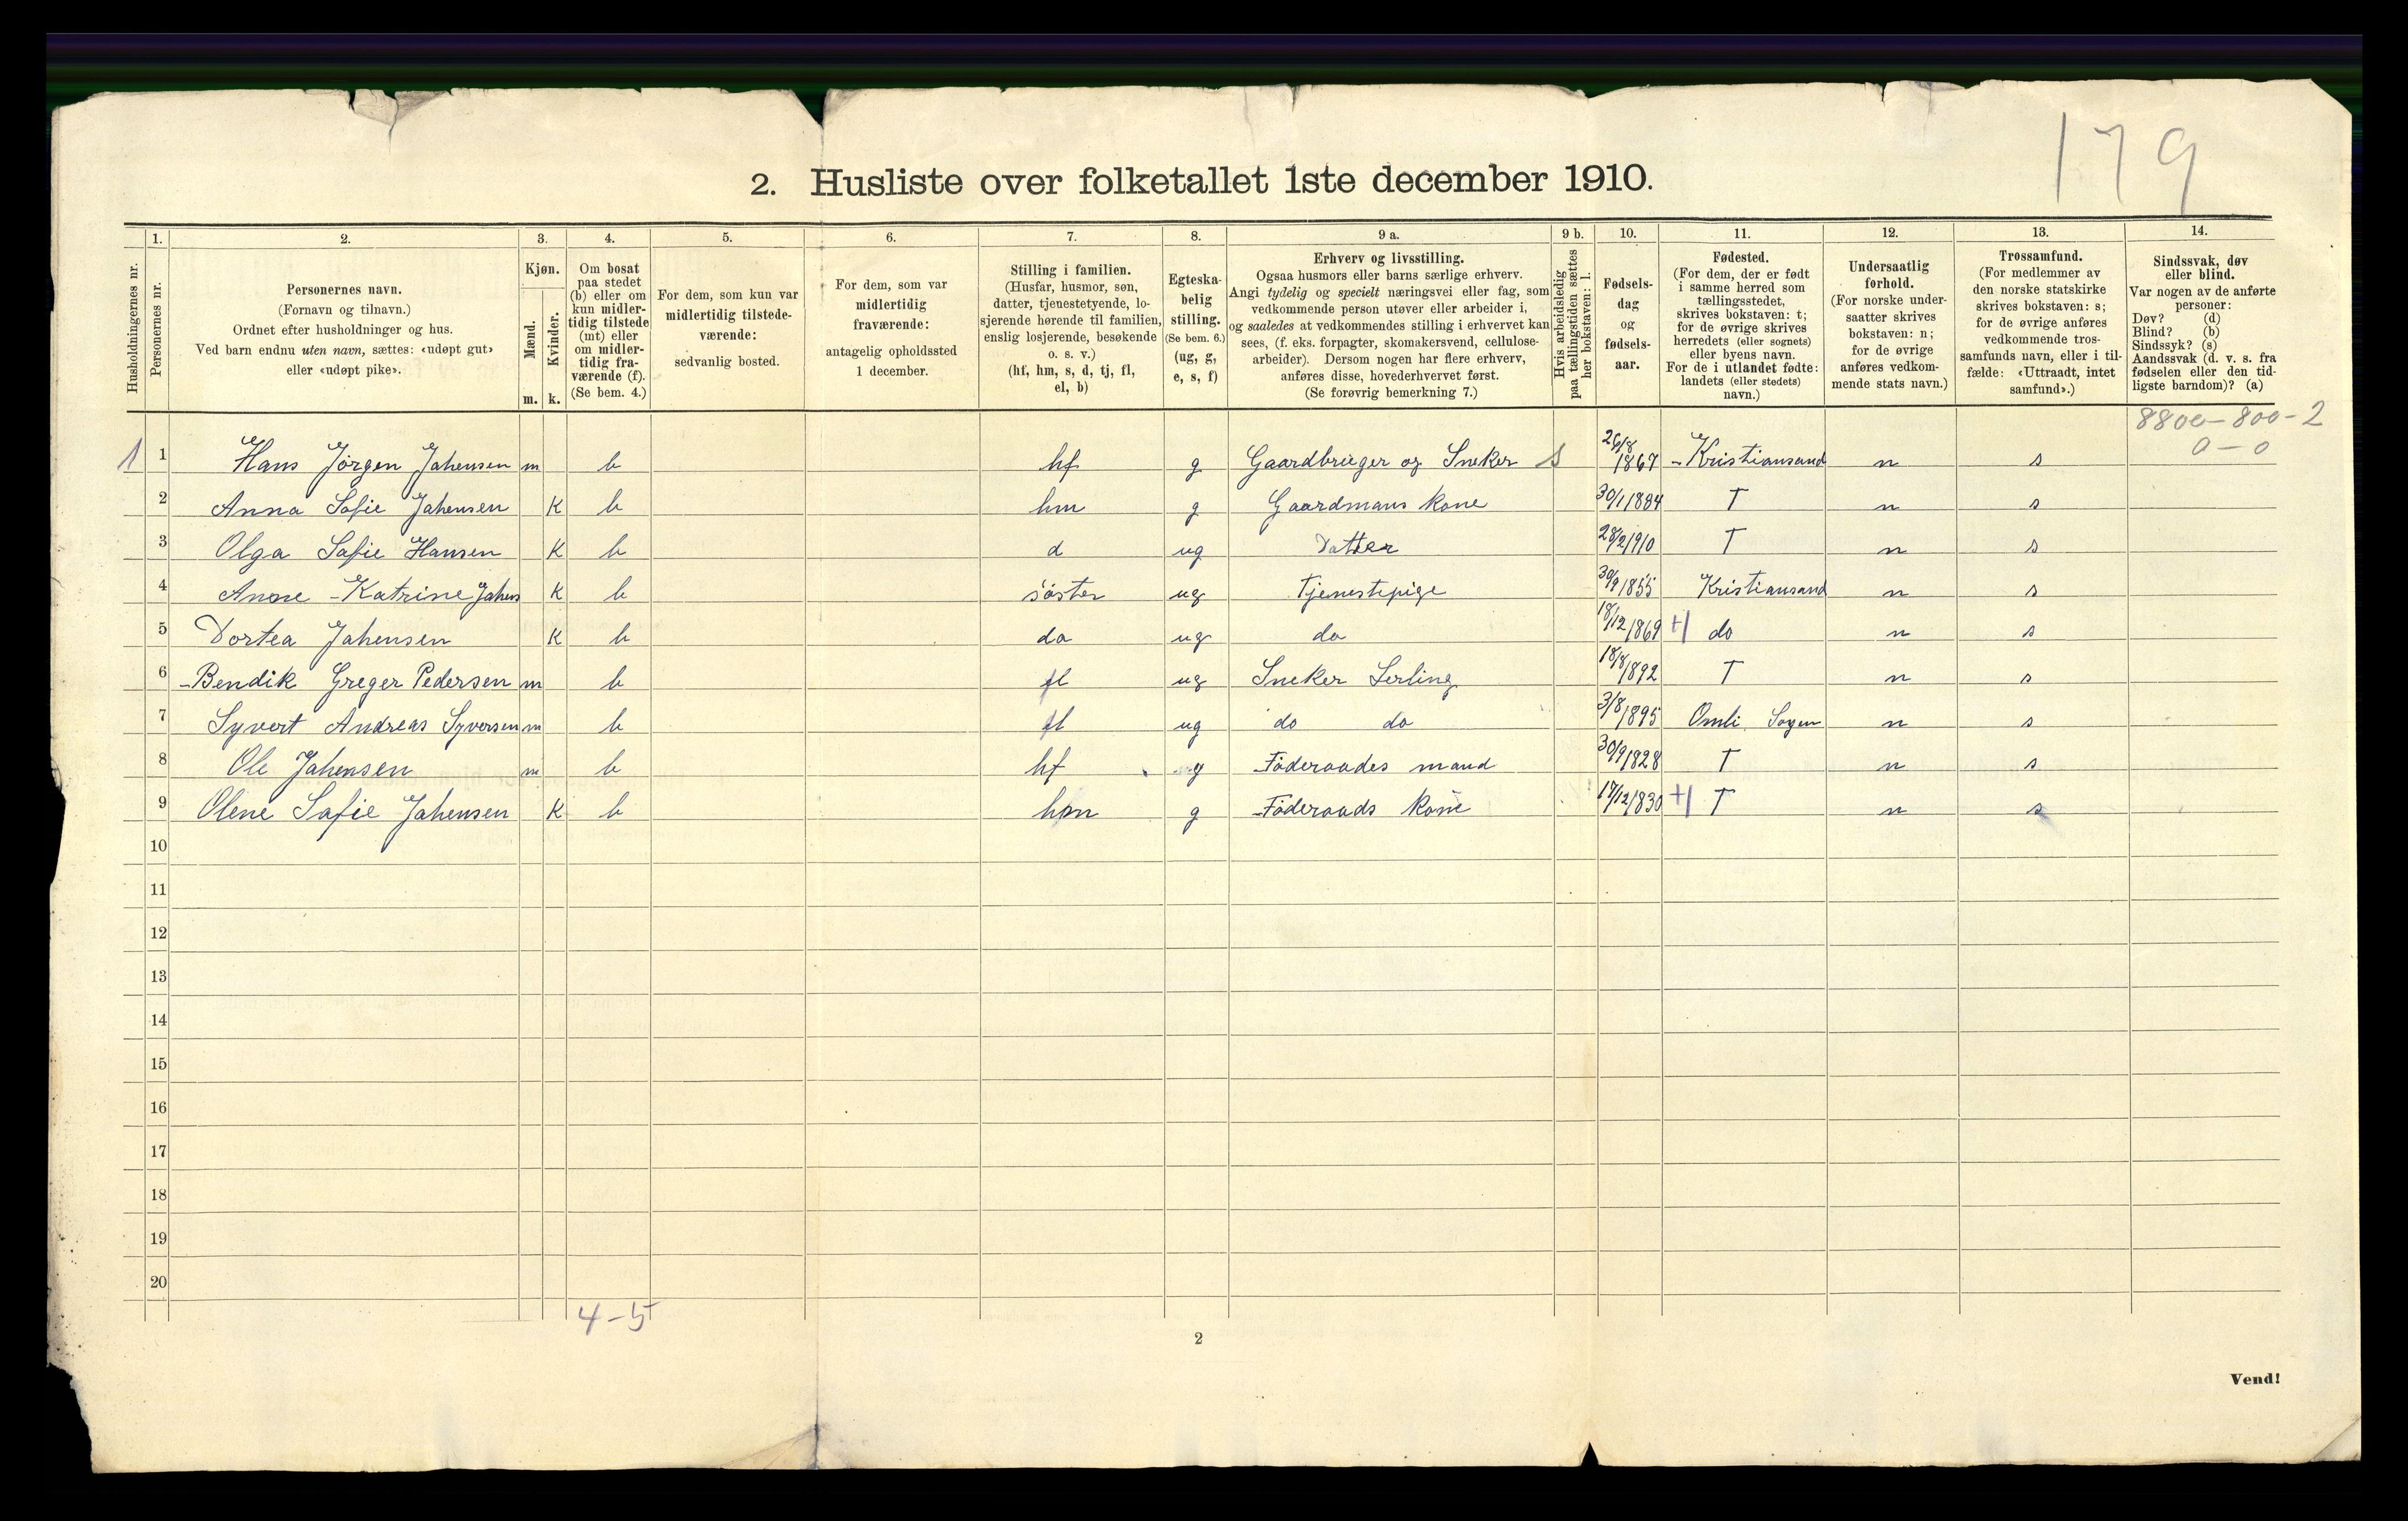 179
2. Husliste over folketallet 1ste december 1910.
Husholdningernes nr.
1.
Personernes nr.
2.
Personernes navn.
(Fornavn og tilnavn.)
Ordnet efter husholdninger og hus.
Ved barn endnu uten navn, sættes: «udøpt gut»
eller «udøpt pike».
3.
Kjøn.
Mænd.
Kvinder.
m. k.
4.
Om bosat
paa stedet
(b) eller om
kun midler-
tidig tilstede
(mt) eller
om midler-
tidig fra-
værende (f).
(Se bem. 4.)
5.
For dem, som kun var
midlertidig tilstede-
værende:
sedvanlig bosted.
6.
For dem, som var
midlertidig
fraværende:
antagelig opholdssted
1 december.
7.
Stilling i familien.
(Husfar, husmor, søn,
datter, tjenestetyende, lo-
sjerende hørende til familien,
enslig losjerende, besøkende
o. s. v.)
(hf, hm, s, d, tj, fl,
el, b)
8.
Egteska-
belig
stilling.
(Se bem. 6.)
(ug, g,
e, s, f)
9 a.
Erhverv og livsstilling.
Ogsaa husmors eller barns særlige erhverv.
Angi tydelig og specielt næringsvei eller fag, som
vedkommende person utøver eller arbeider i,
og saaledes at vedkommendes stilling i erhvervet kan
sees, (f. eks. forpagter, skomakersvend, cellulose-
arbeider). Dersom nogen har flere erhverv,
anføres disse, hovederhvervet først.
(Se forøvrig bemerkning 7.)
9 b.
Hvis arbeidsledig
paa tællingstiden sættes
her bokstaven: l.
10.
Fødsels-
dag
og
fødsels-
aar.
11.
Fødested.
(For dem, der er født
i samme herred som
tællingsstedet,
skrives bokstaven: t;
for de øvrige skrives
herredets (eller sognets)
eller byens navn.
For de i utlandet fødte:
landets (eller stedets)
navn.)
12.
Undersaatlig
forhold.
(For norske under-
saatter skrives
bokstaven: n;
for de øvrige
anføres vedkom-
mende stats navn.)
13.
Trossamfund.
(For medlemmer av
den norske statskirke
skrives bokstaven: s;
for de øvrige anføres
vedkommende tros-
samfunds navn, eller i til-
fælde: «Uttraadt, intet
samfund».)
14.
Sindssvak, døv
eller blind.
Var nogen av de anførte
personer:
Døv? (d)
Blind? (b)
Sindssyk? (s)
Aandssvak (d. v. s. fra
fødselen eller den tid-
ligste barndom)? (a)
8800-800-2
0-0
1 1 Hans Jørgen Jahensen m b hf g Gaardbruger og Sneker S 26/8 1867 Kristiansand n s
2 Anna Sofie Jahensen K b hm g Gaardmans kone 30/1 1884 T n s
3 Olga Sofie Hansen K b d ug Datter 28/2 1910 T n s
4 Anne Katrine Jahens K b söster ug Tjenestepige 30/9 1855 Kristiansand n s
5 Dortea Jahensen K b do ug do 18/12 1869 +1 do n s
6 Bendik Greger Pedersen m b fl ug Sneker Lerling 18/8 1892 T n s
7 Syvert Andreas Syversen m b fl ug do do 3/8 1895 Omli Sogen n s
8 Ole Jahensen m b hf g Föderaades mand 30/9 1828 T n s
9 Olene Sofie Jahensen K b hm g Föderaads kone 17/12 1830 +1 T n s
10
11
12
13
14
15
16
17
18
19
20
4-5
2
Vend!